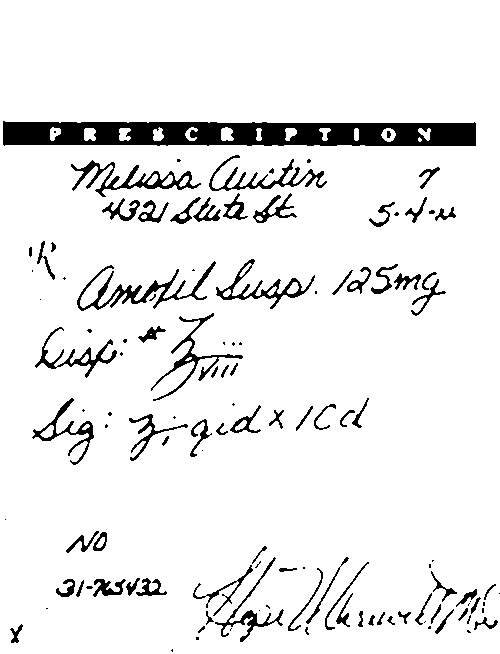 PRESCRIPTION
Melissa Austin 7
4321 State St. 5-4-
Amoxil Susp. 125mg
Disp: # ℥ viii
Sig: ʒ i qid x 10d
NO
31-765432
X